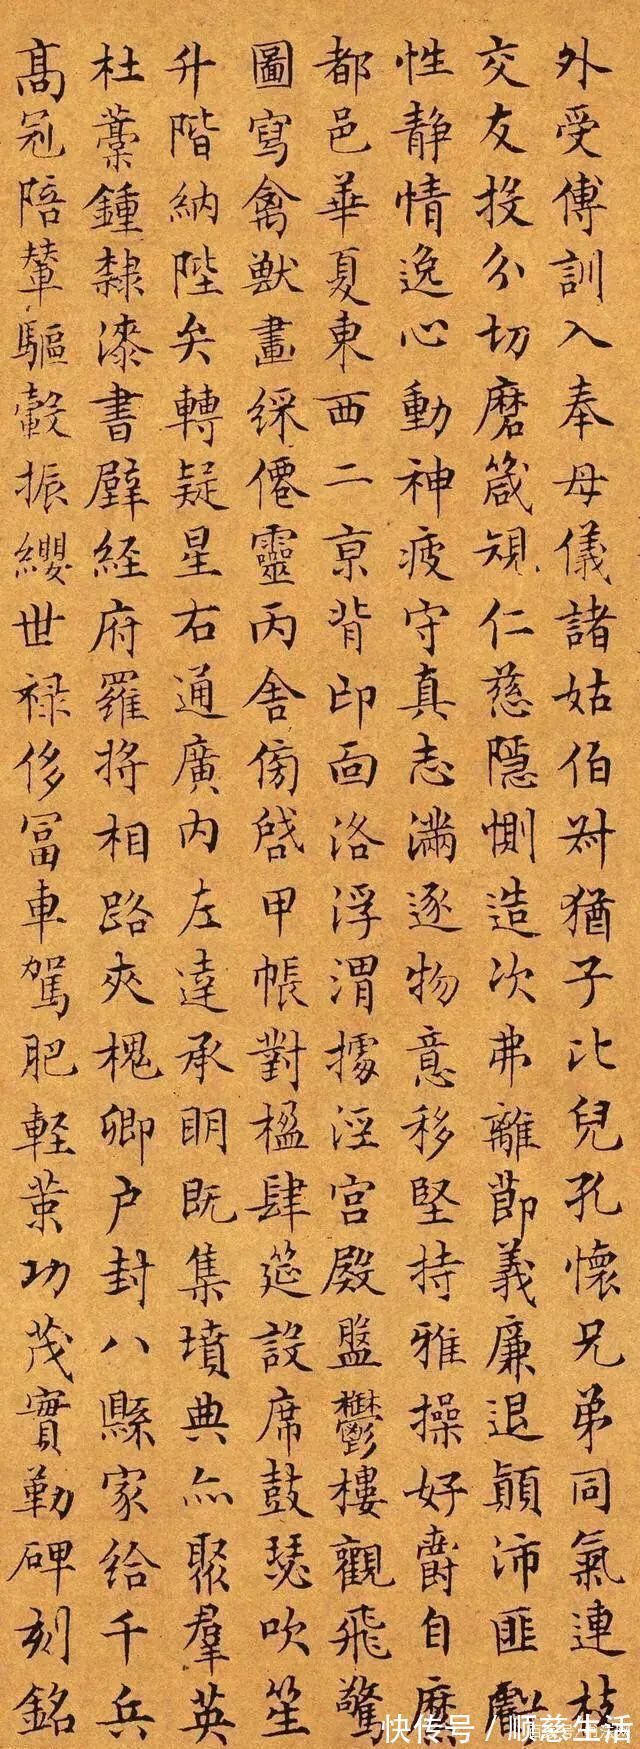 外受傅訓入奉母儀諸姑伯叔猶子比兒孔懷兄弟同氣連枝
交友投分切磨箴規仁慈隱惻造次弗離節義廉退顛沛匪虧
性静情逸心動神疲守真志滿逐物意移堅持雅操好爵自縻
都邑華夏東西二京背邙面洛浮渭據涇宮殿盤鬱樓觀飛驚
圖寫禽獸畫綵僊靈丙舍傍啓甲帳對楹肆筵設席鼓瑟吹笙
升階納陛弁轉疑星右通廣内左達承明既集墳典亦聚羣英
杜藁鍾隸漆書壁経府羅將相路夾槐卿户封八縣家給千兵
髙冠陪輦驅轂振纓世禄侈冨車駕肥軽策功茂實勒碑刻銘
快传号／顺慈生活